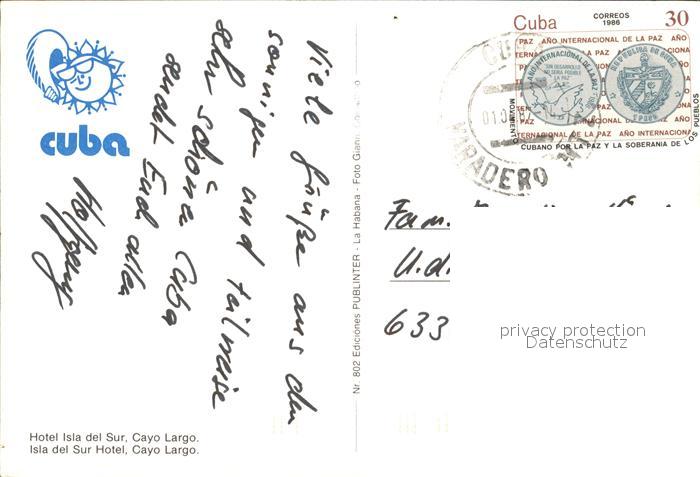 cuba
Viele Grüße aus dem
sonnigen und teilweise
sehr schöne Cuba
sendet Euch allen
Hotel Isla del Sur, Cayo Largo.
Isla del Sur Hotel, Cayo Largo.
Nr. 802 Ediciónes PUBLINTER - La Habana - Foto
Cuba CORREOS 1986 30
PAZ AÑO INTERNACIONAL DE LA PAZ AÑO
AÑO INTERNACIONAL DE LA PAZ
SIN DESARROLLO
NO SERIA POSIBLE
LA PAZ
REPUBLICA DE CUBA
INTERNACIONAL DE LA PAZ AÑO INTERNACIONA
MOVIMIENTO CUBANO POR LA PAZ Y LA SOBERANIA DE LOS PUEBLOS
VARADERO
Fam.
U.d.
633
privacy protection
Datenschutz